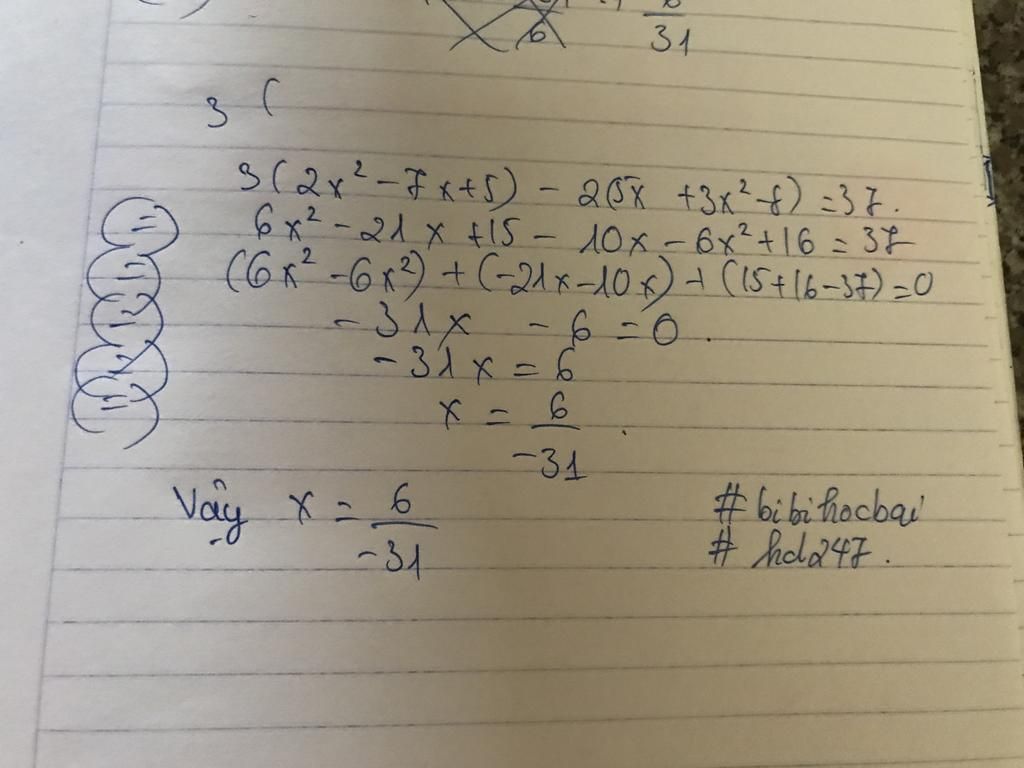 6 31
3 (
3(2x² - 7x + 5) - 2(5x + 3x² - 8) = 37.
(=) 6x² - 21x + 15 - 10x - 6x² + 16 = 37
(=) (6x² - 6x²) + (-21x - 10x) + (15 + 16 - 37) = 0
(=) - 31x - 6 = 0.
(=) - 31x = 6
(=) x = 6/-31.
Vậy x = 6/-31
#bibihocbai
# hd247.